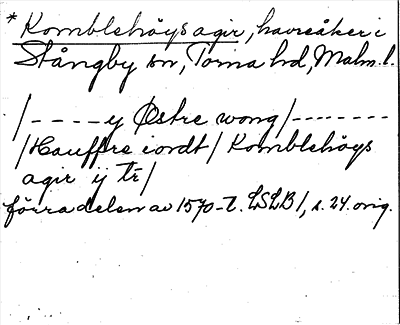 * Komblehöys agir, havreåker i
Stångby sn, Torna hd, Malm. l.
/----y Østre wong/--------
/Hauffre iordt/ Komblehöys
agir ij tr/
förra delen av 1570-t. LSLB 1, s. 24. orig.